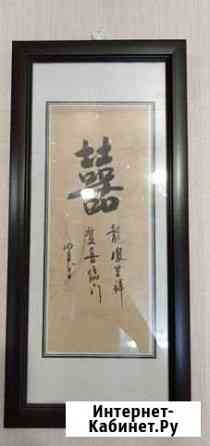 囍
龍鳳呈祥
雙喜临门
Интернет-
Кабинет.Ру